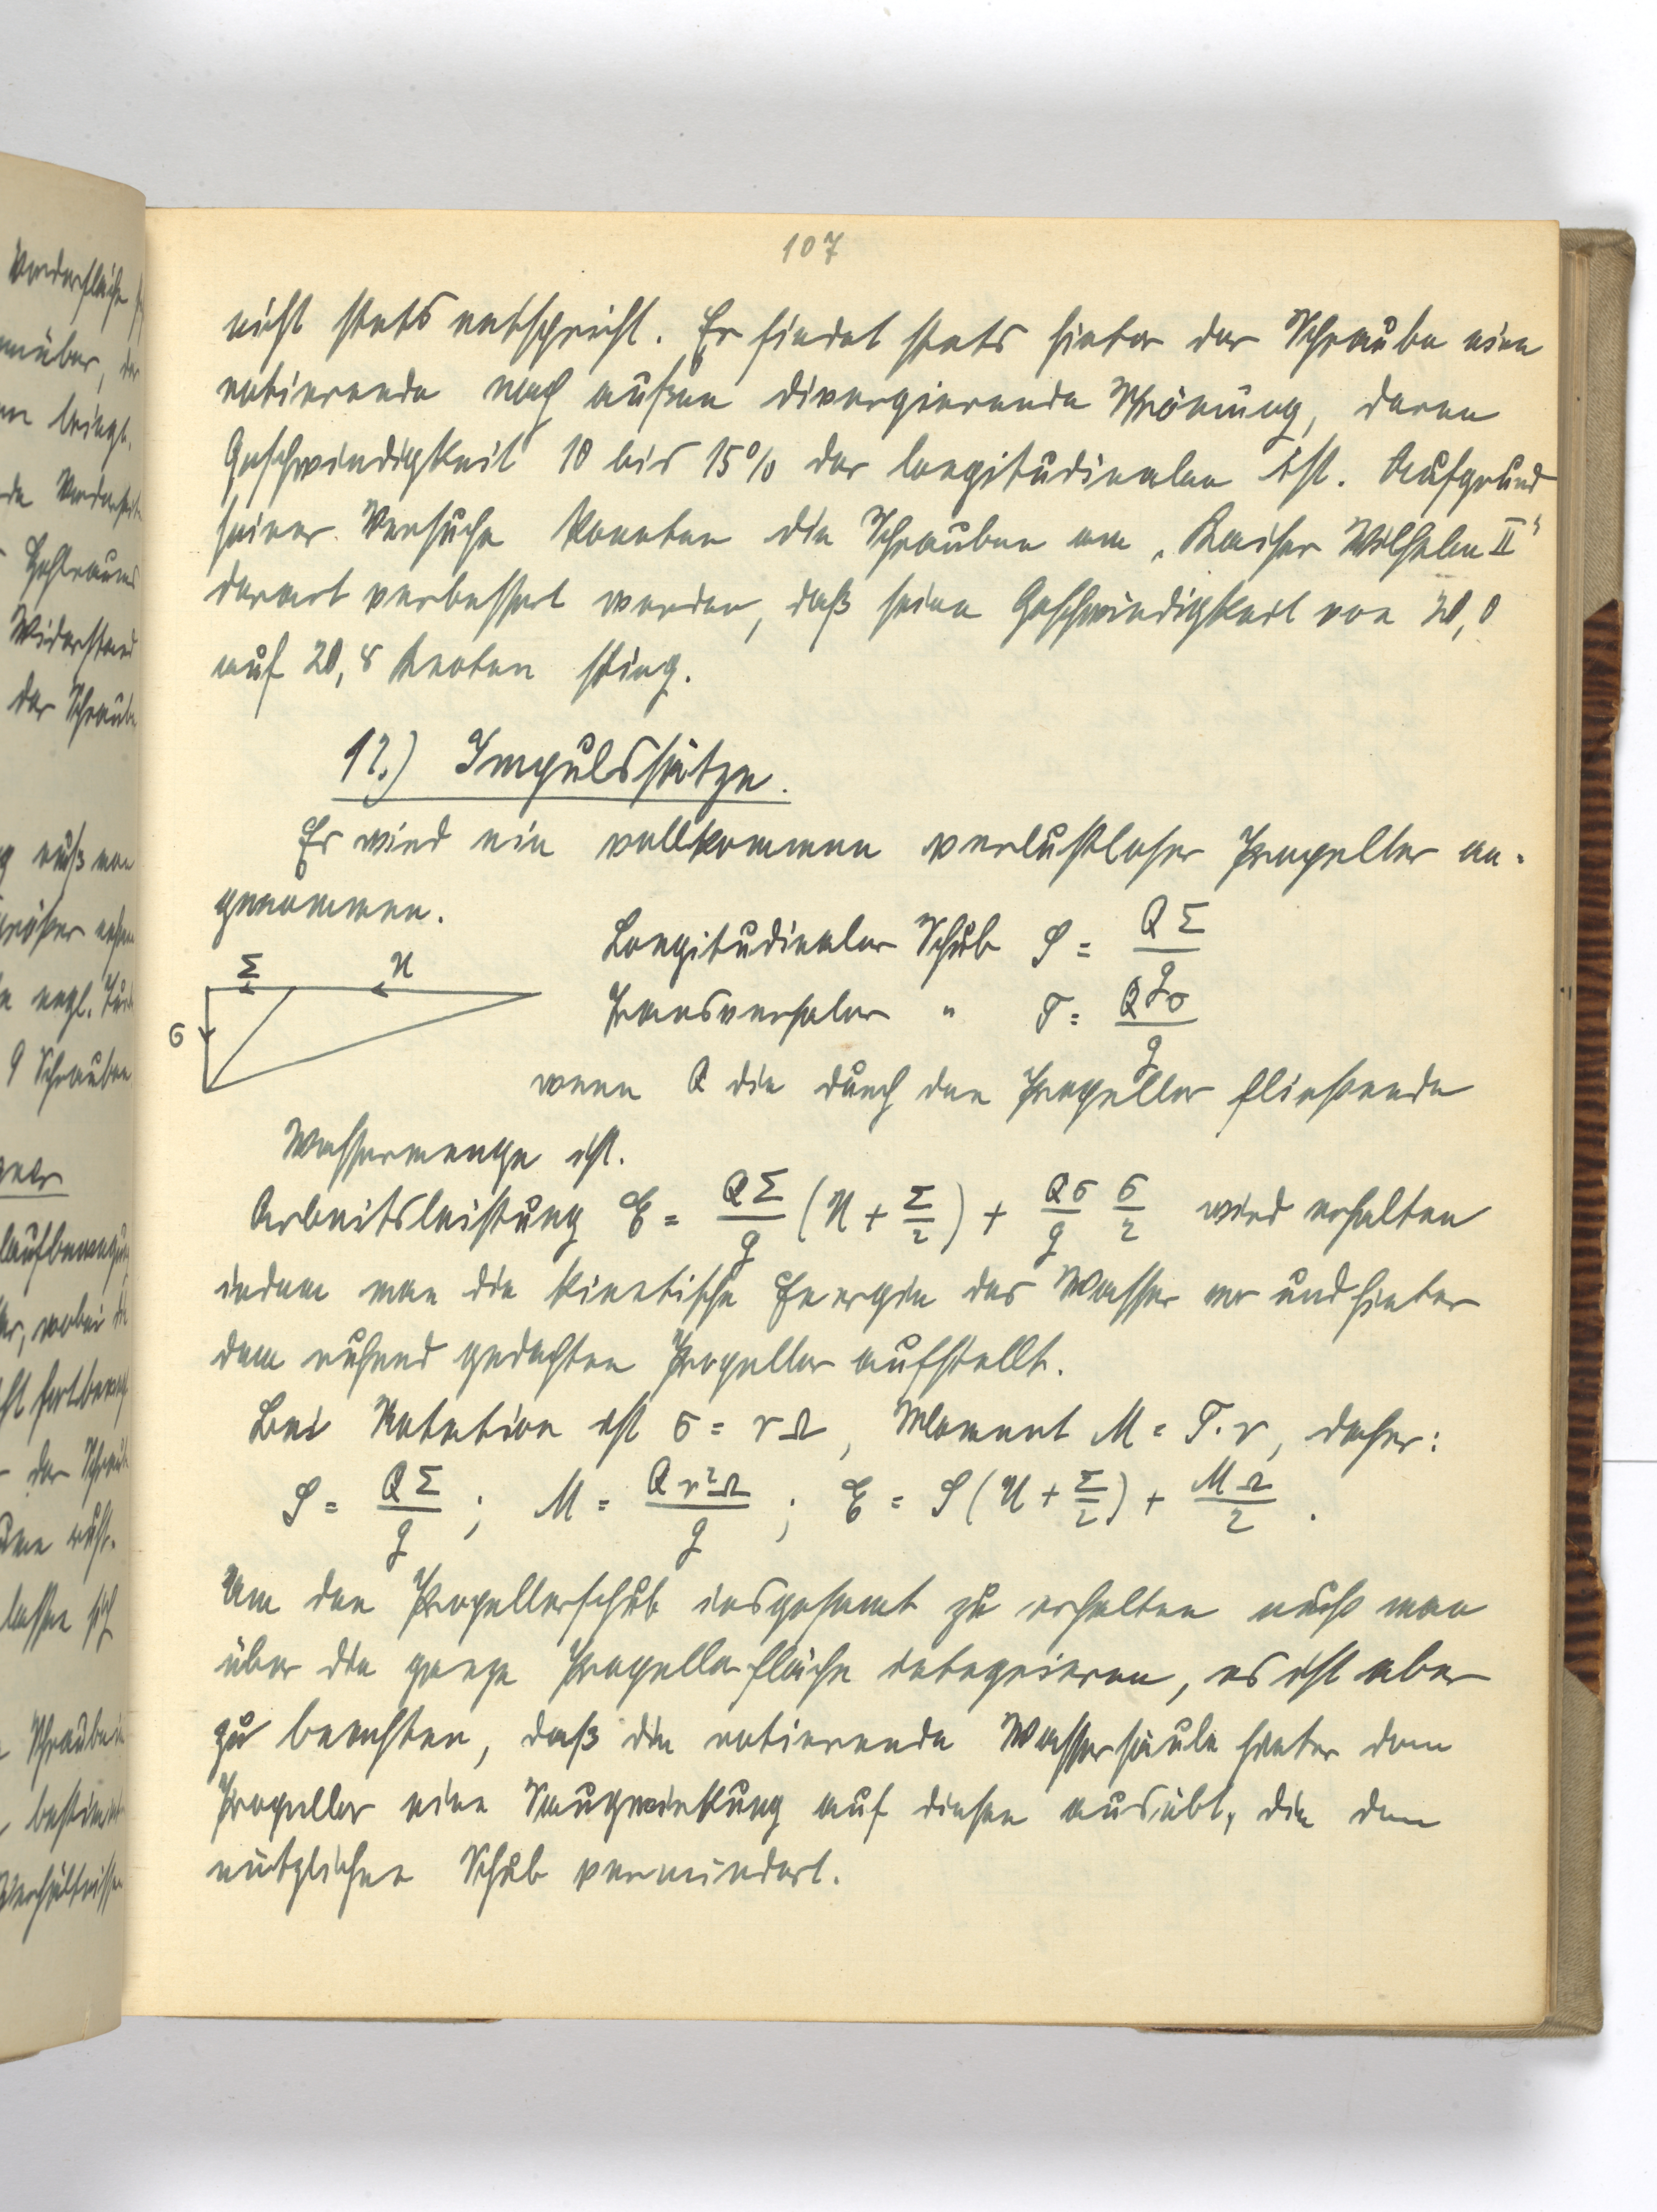 107
nicht stets entspricht. Er findet stets hinter der Schraube eine
rotierende nach außen divergierende Strömung, deren
Geschwindigkeit 10 bis 15% der longitudinalen ist. Aufgrund
seiner Versuche konnten die Schrauben am „Kaiser Wilhelm II“
derart verbessert werden, daß seine Geschwindigkeit von 20,0
auf 20,8 Knoten stieg.
12.) Impulssätze.
Es wird ein vollkommen verlustloser Propeller an-
genommen.
Longitudinaler Schub S = QΣ/g
Transversaler " T = Qσ/g
Σ u
σ
wenn Q die durch den Propeller fließende
Wassermenge ist.
Arbeitsleistung E = QΣ/g (u + Σ/2) + Qσ/g σ/2 wird erhalten
indem man die kinetische Energie des Wasser vor und hinter
dem ruhend gedachten Propeller aufstellt.
Bei Rotation ist σ = rΩ, Moment M = T.r, daher:
S = QΣ/g ; M = Qr²Ω/g ; E = S(u + Σ/2) + MΩ/2 .
Um den Propellerschub insgesamt zu erhalten muß man
über die ganze Propellerfläche integrieren, es ist aber
zu beachten, daß die rotierende Wassersäule hinter dem
Propeller eine Saugwirkung auf diesen ausübt, die den
nützlichen Schub vermindert.